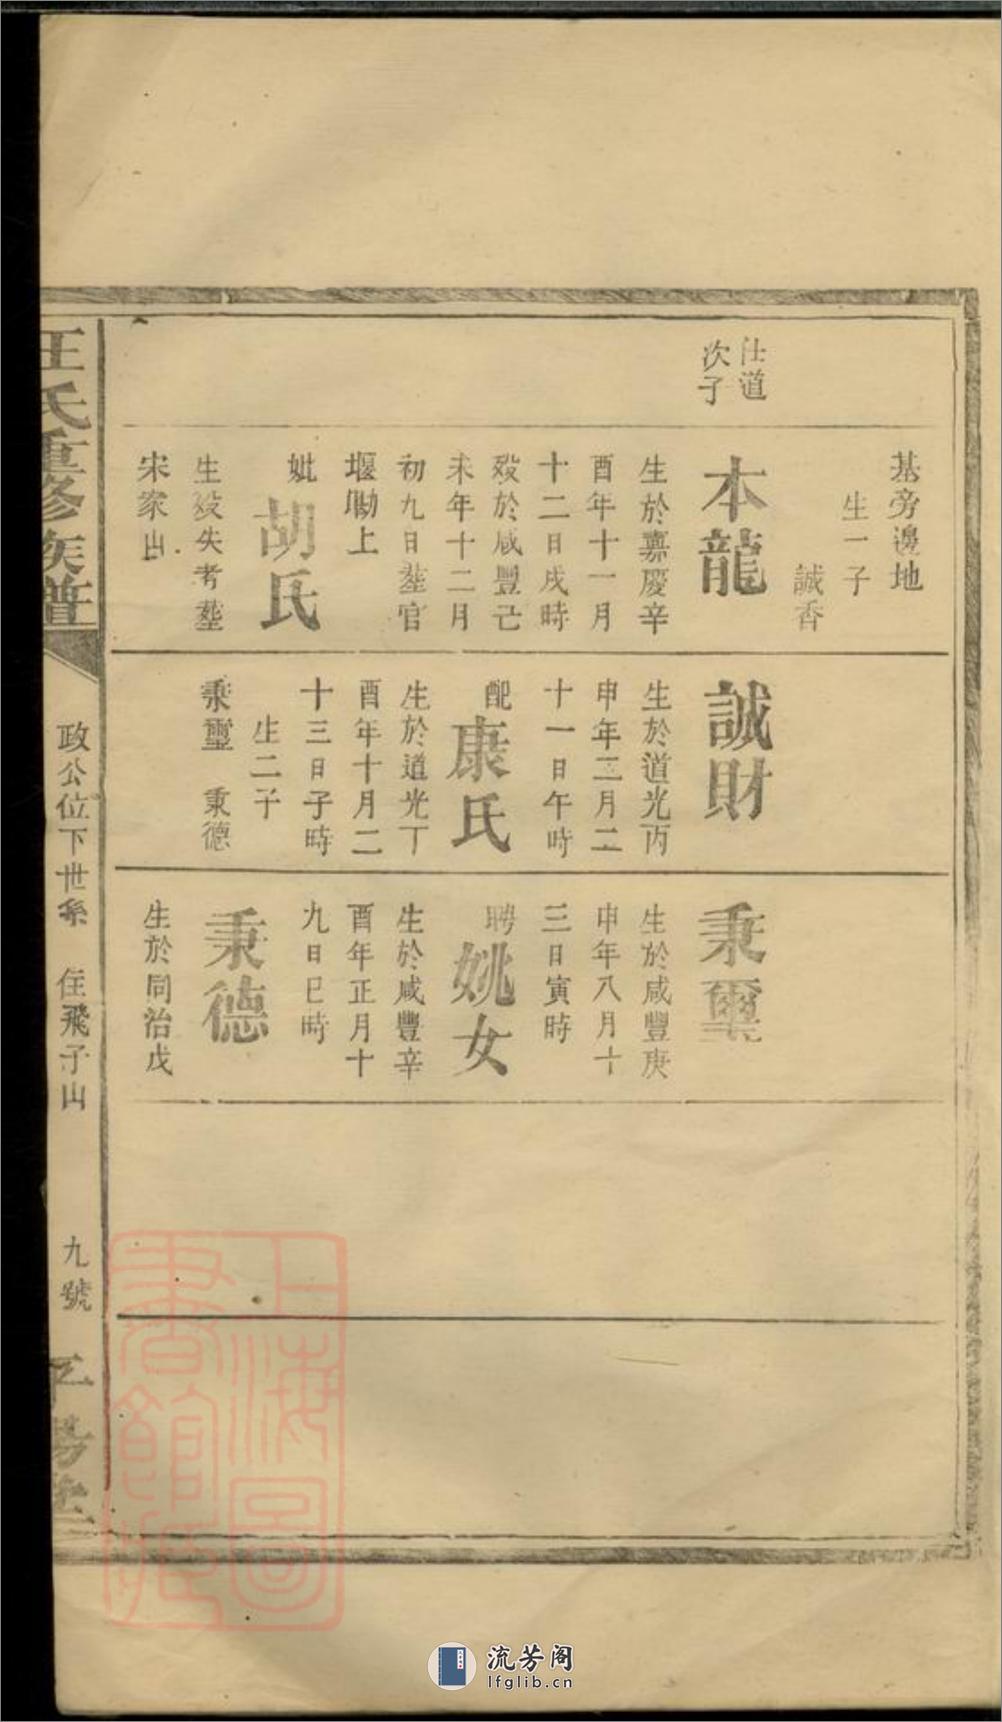 基旁邊地
生一子
誠香
仕道
次子
本龍
生於嘉慶辛
酉年十一月
十二日戌時
歿於咸豐己
未年十二月
初九日塟官
堰勘上
妣
胡氏
生歿失考塟
宋家山
誠財
生於道光丙
申年三月二
十一日午時
配
康氏
生於道光丁
酉年十月二
十三日子時
生二子
秉璽 秉德
秉璽
生於咸豐庚
申年八月十
三日寅時
聘
姚女
生於咸豐辛
酉年正月十
九日巳時
秉德
生於同治戊
王氏重修族譜
政公位下世系 住飛子山
九號
上海圖
書館藏
流芳阁
lfglib.cn